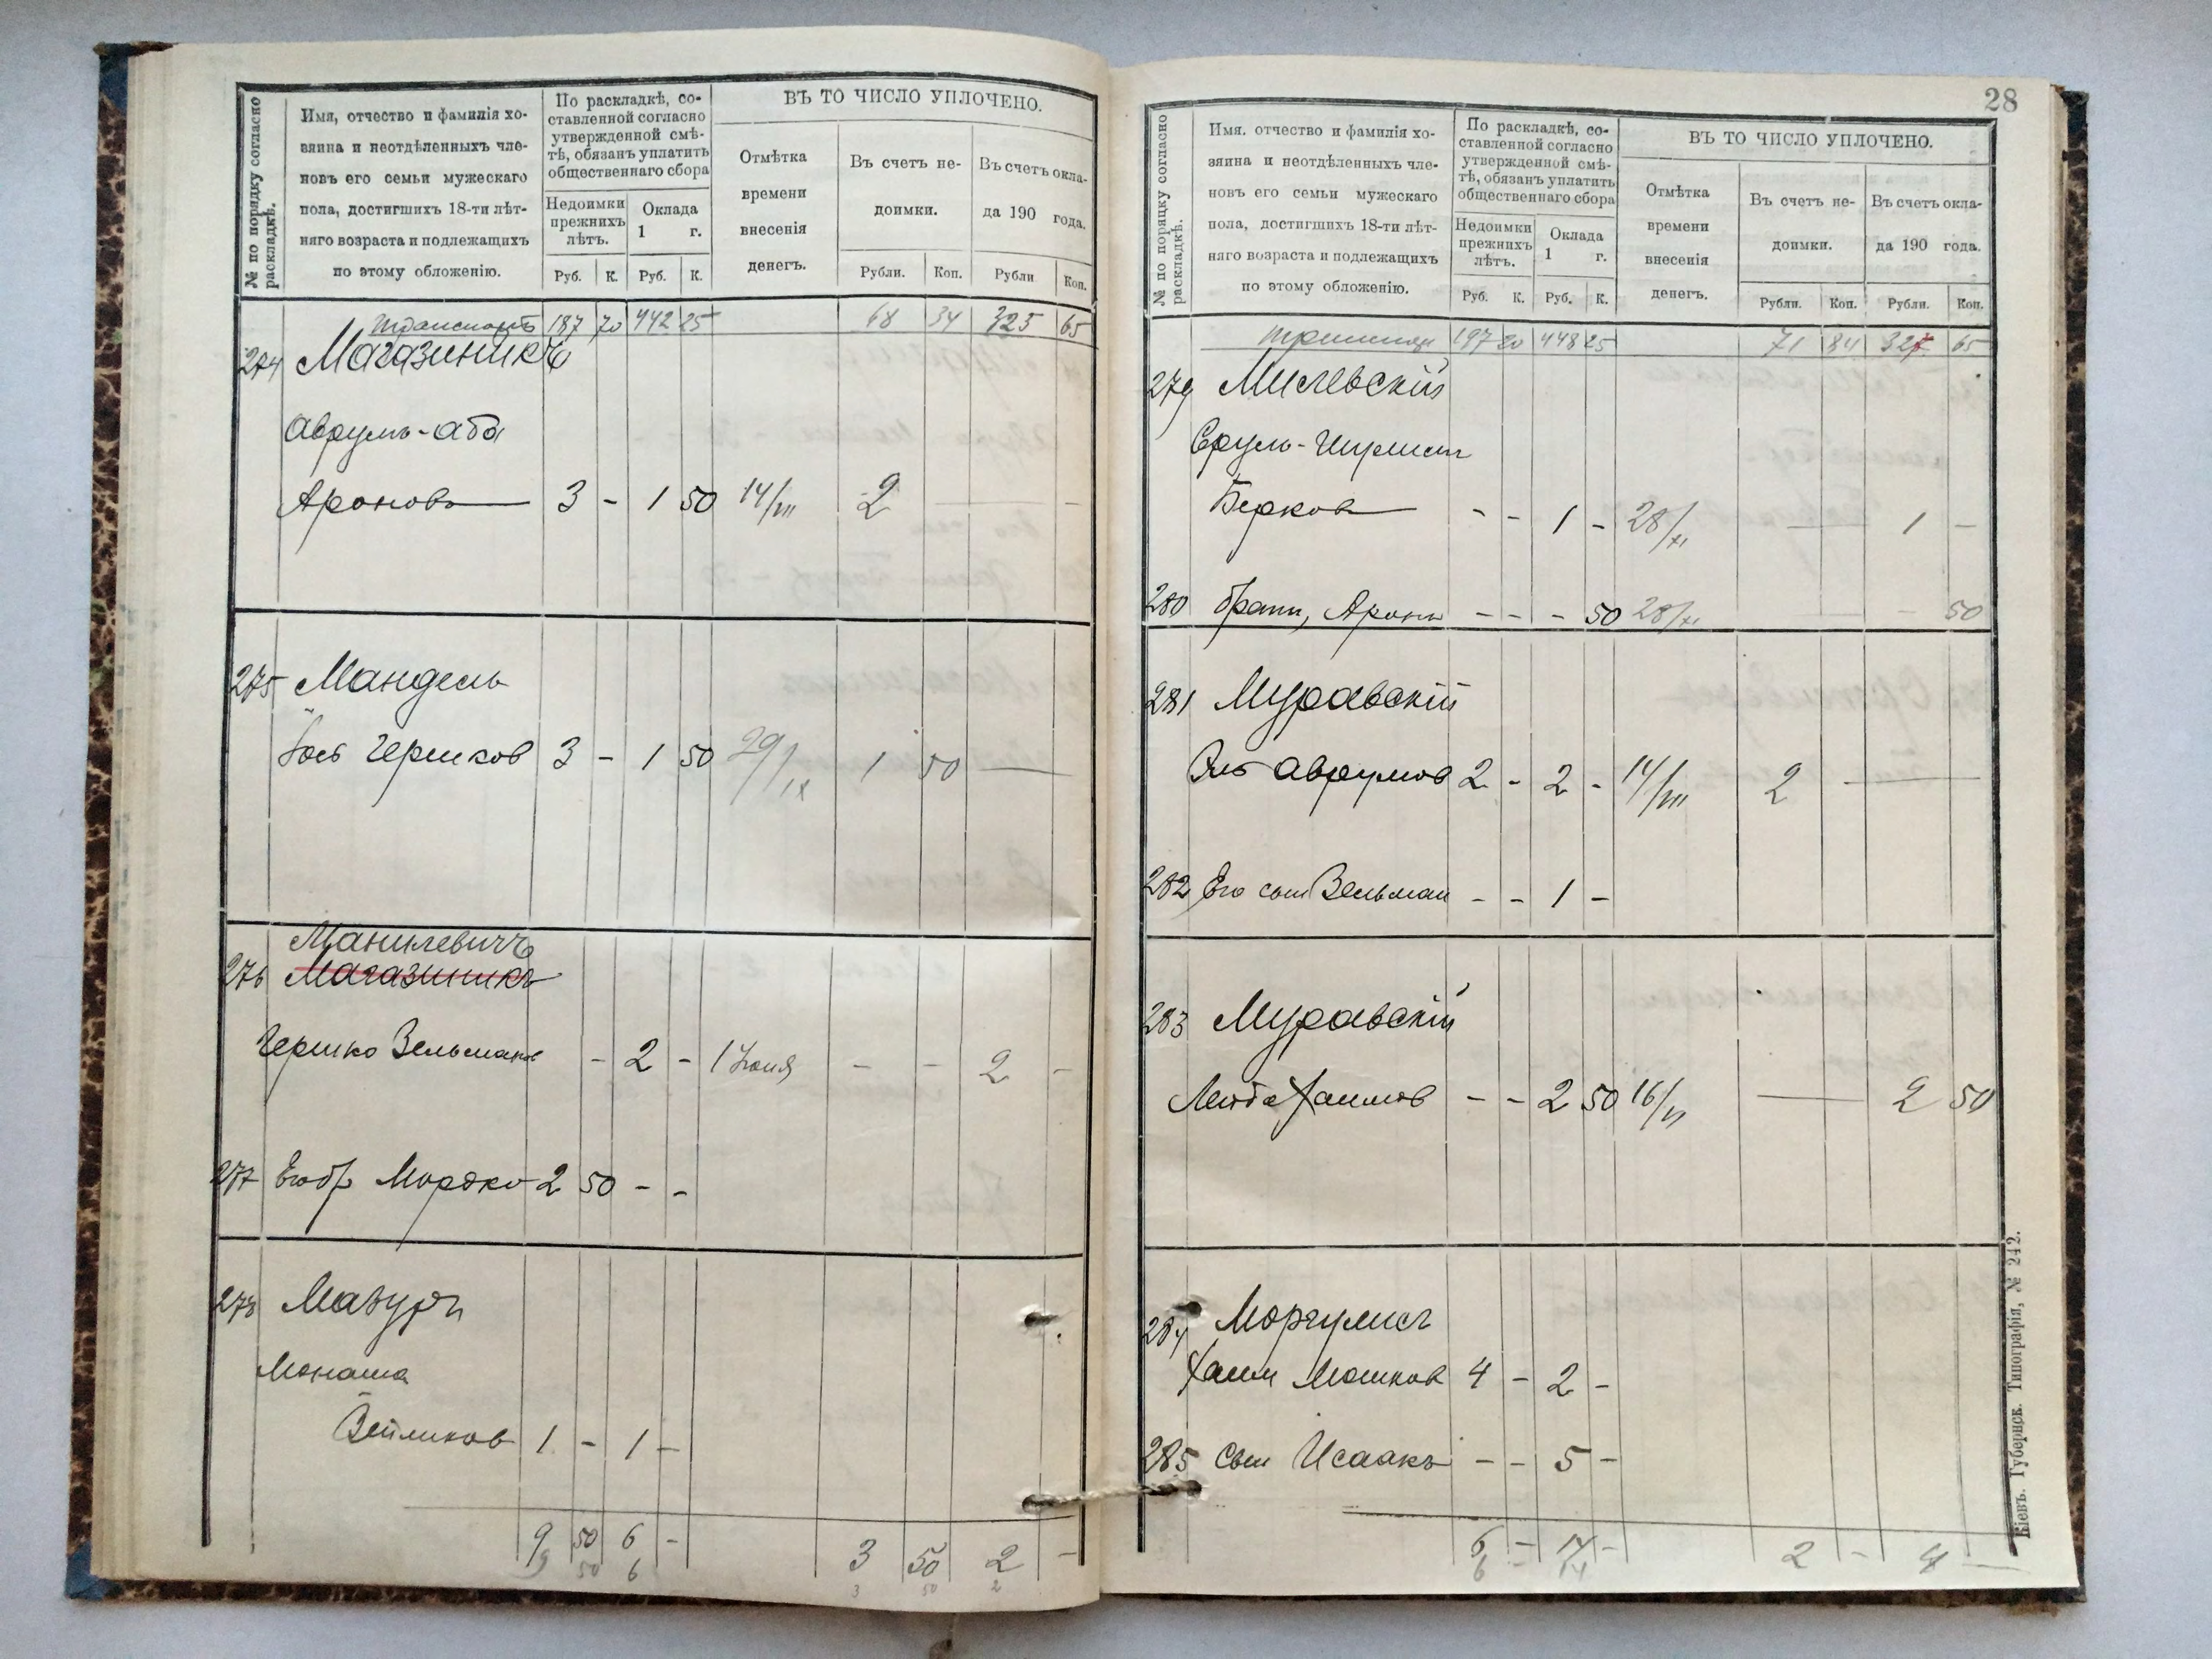 № по порядку согласно раскладкѣ.
Имя, отчество и фамилія хо-
зяина и неотдѣленныхъ чле-
новъ его семьи мужескаго
пола, достигшихъ 18-ти лѣт-
няго возраста и подлежащихъ
по этому обложенію.
По раскладкѣ, со-
ставленной согласно
утвержденной смѣ-
тѣ, обязанъ уплатить
общественнаго сбора
Недоимки
прежнихъ
лѣтъ.
Оклада
1 г.
Руб. К. Руб. К.
ВЪ ТО ЧИСЛО УПЛОЧЕНО.
Отмѣтка
времени
внесенія
денегъ.
Въ счетъ не-
доимки.
Въ счетъ окла-
да 190 года.
Рубли. Коп. Рубли Коп.
транспортъ 187 70 442 25 68 34 325 65
274 Магазиникъ
Аврумъ-Аба
Ароновъ 3 - 1 50 14/VII 2 — -
275 Мандель
Гершков 3 - 1 50 29/IX 1 50 —
Манилевичъ
276 Магазиникъ
Гершко Зельманов - 2 - 1 Іюня - - 2 -
277 Его бр Мордко 2 50 - -
278 Мазуръ
Монаша
Зейликов 1 - 1 -
9 50 6 - 3 50 2 -
9 50 6 3 50 2
28
№ по порядку согласно раскладкѣ.
Имя. отчество и фамилія хо-
зяина и неотдѣленныхъ чле-
новъ его семьи мужескаго
пола, достигшихъ 18-ти лѣт-
няго возраста и подлежащихъ
по этому обложенію.
По раскладкѣ, со-
ставленной согласно
утвержденной смѣ-
тѣ, обязанъ уплатить
общественнаго сбора
Недоимки
прежнихъ
лѣтъ.
Оклада
1 г.
Руб. К. Руб. К.
ВЪ ТО ЧИСЛО УПЛОЧЕНО.
Отмѣтка
времени
внесенія
денегъ.
Въ счетъ не-
доимки.
Въ счетъ окла-
да 190 года.
Рубли. Коп. Рубли. Коп.
197 20 448 25 71 84 327 65
279 Милевскій
Сруль-Гиршъ
Берков - - 1 - 28/XI — 1 -
280 братъ, Аронъ - - - 50 28/XI - 50
281 Муравскій
Аврумов 2 - 2 - 14/VII 2 —
282 Его сын Зельман - - 1 -
283 Муравскій
Лейба Хаимов - - 2 50 16/VI — 2 50
284 Моргулисъ
Хаим Мошков 4 - 2 -
285 Сын Исаакъ - - 5 -
6 - 14 - 2 - 4 -
6 - 14
Кіевъ. Губернск. Типографія, № 242.